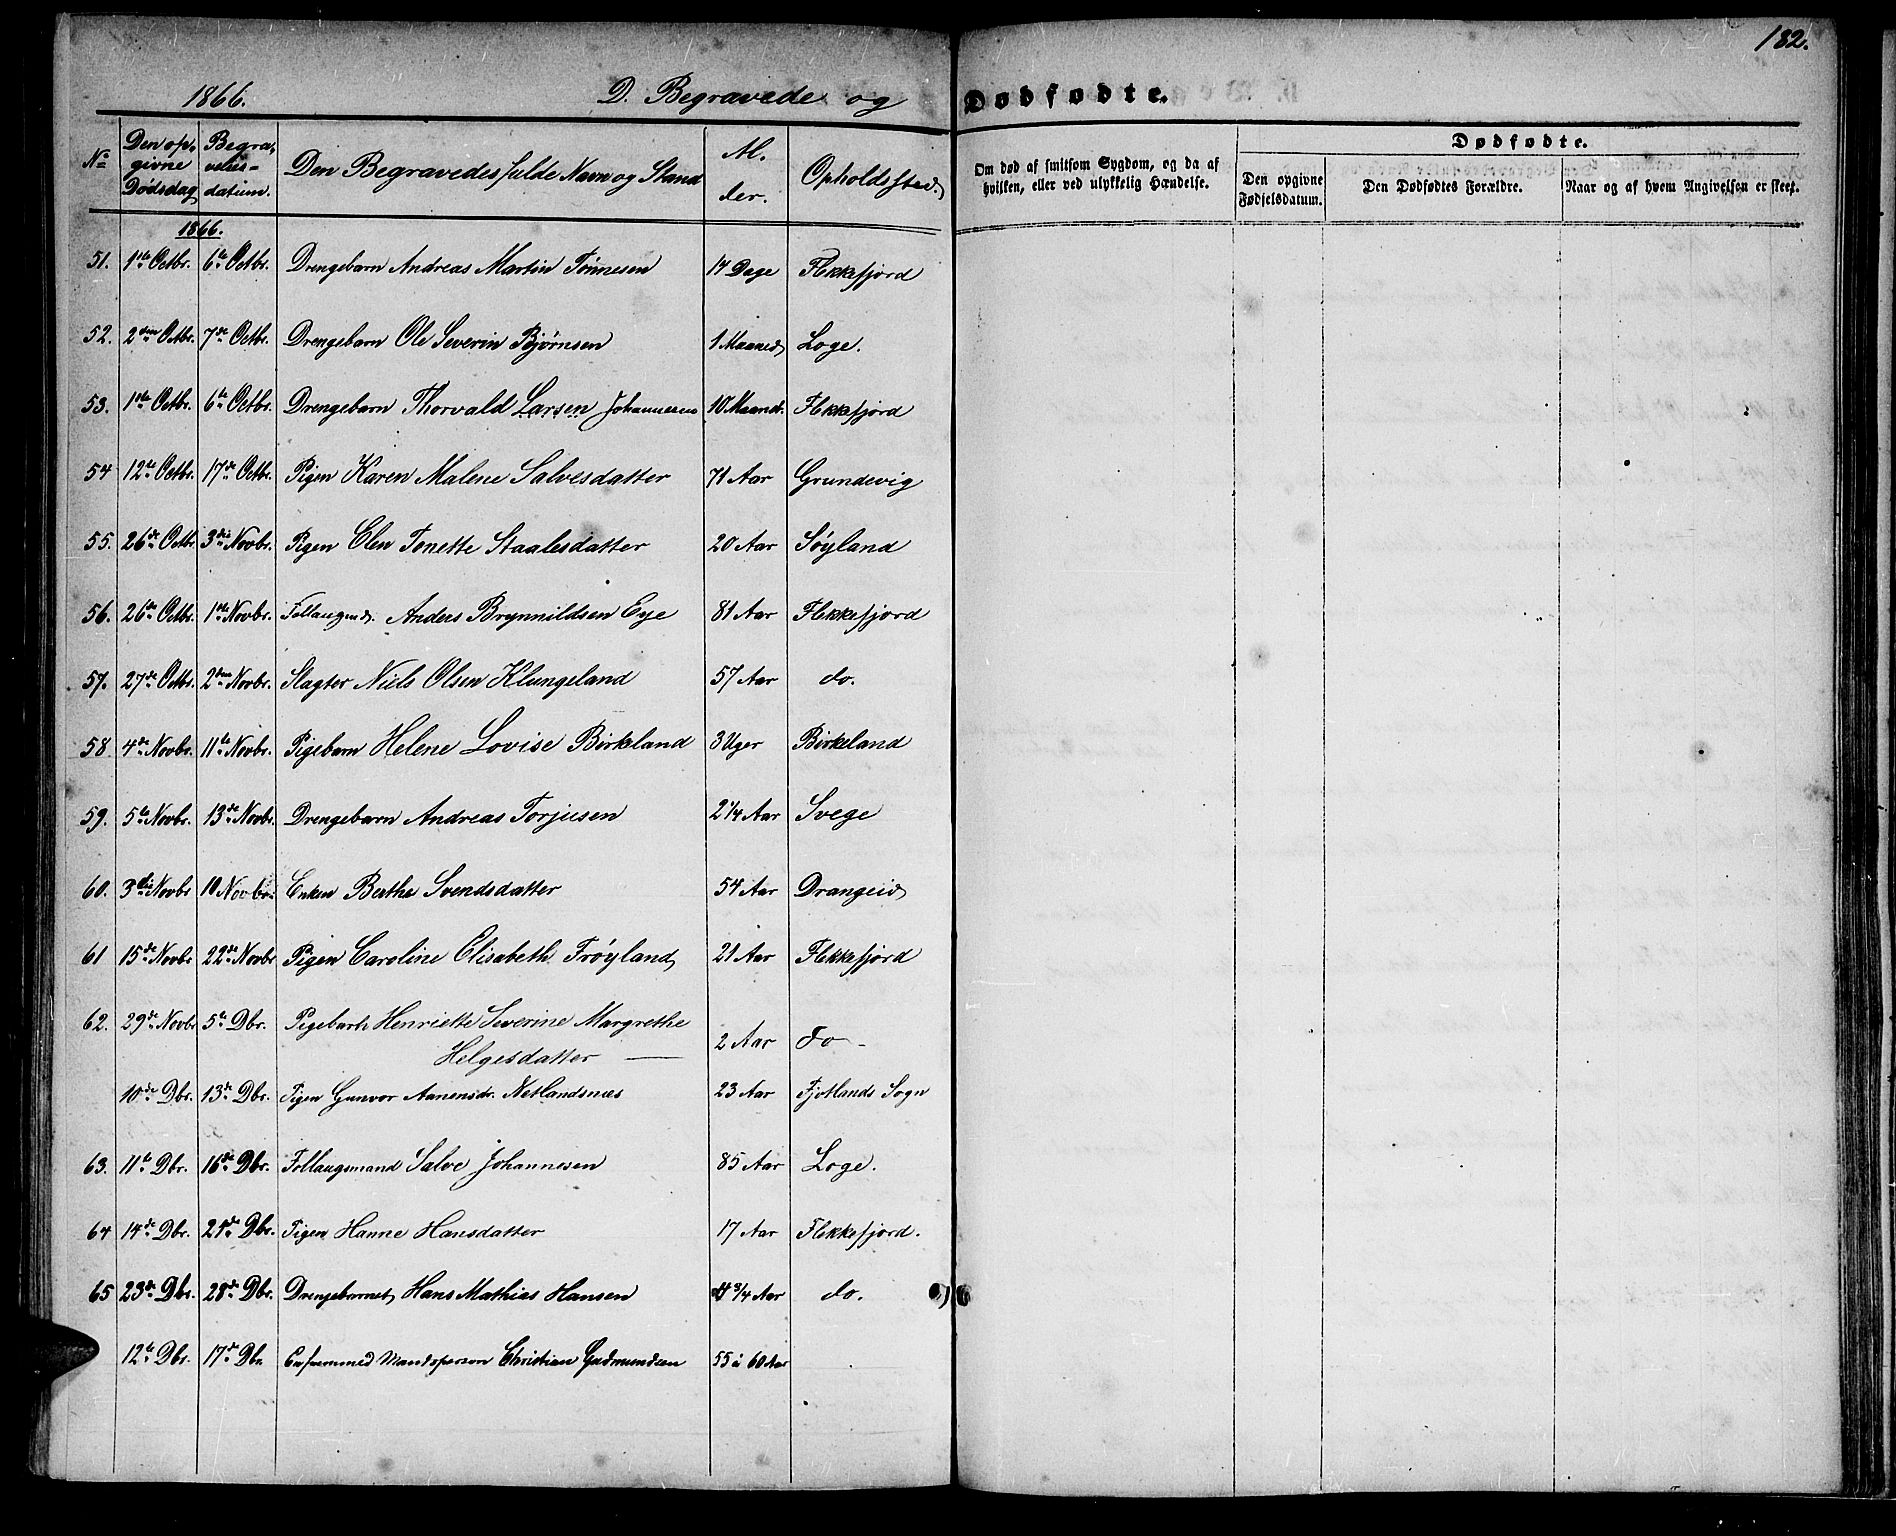 182.
1866. D. Begravede og Dødfødte.
No Den op-givne Dødsdag Begra-velses-datum. Den Begravedes fulde Navn og Stand Al-der. Opholdssted
Om død af smitsom Sygdom, og da af hvilken, eller ved ulykkelig Hændelse. Dødfødte. Den opgivne Fødselsdatum. Den Dødfødtes Forældre. Naar og af hvem Angivelsen er skeet.
1866.
51. 1ste Octbr. 6te Octbr. Drengebarn Andreas Martin Tønnesen 17 Dage Flekkefjord
52. 2den Octbr. 7de Octbr. Drengebarn Ole Severin Bjørnsen 1 Maaned Loge.
53. 1ste Octbr. 6te Octbr. Drengebarn Thorvald Larsen Johannesen 10 Maand. Flekkefjord
54 12te Octbr. 17de Octbr. Pigen Karen Malene Salvesdatter 71 Aar Grundevig
55. 26de Octbr 3die Novbr. Pigen Elen Tonette Staalesdatter 20 Aar Søyland
56. 26de Octbr. 1ste Novbr. Follaugmd. Anders Brynnildsen Eye 81 Aar Flekkefjord
57. 27de Octbr. 2den Novbr. Slagter Niels Olsen Klungeland 57 Aar do.
58 4de Novbr. 11te Novbr. Pigebarn Helene Lovise Birkeland 3 Uger Birkeland
59. 5te Novbr. 13de Novbr. Drengebarn Andreas Torjusen 2 1/4 Aar Svege
60. 3die Novbr 10 Novbr. Enken Berthe Svendsdatter 54 Aar Drangeid
61 15de Novbr 22de Novbr Pigen Caroline Elisabeth Frøyland 21 Aar Flekkefjord
62. 29de Novbr 5te Dbr. Pigebarn Henriette Severine Margrethe
Helgesdatter — 2 Aar do -
10de Dbr. 13de Dbr. Pigen Gunvor Aanensdr. Netlandsnæs 23 Aar Fjotlands Sogn
63. 11te Dbr. 16de Dbr. Follaugsmand Salve Johannesen 85 Aar Loge.
64 14de Dbr. 21de Dbr. Pigen Hanne Hansdatter 17 Aar Flekkefjord.
65 23de Dbr. 28de Dbr. Drengebarnet Hans Mathias Hansen 3/4 Aar do.
12te Dbr. 17de Dbr. Mandsperson Christian Gudmundsen 55 à 60 Aar